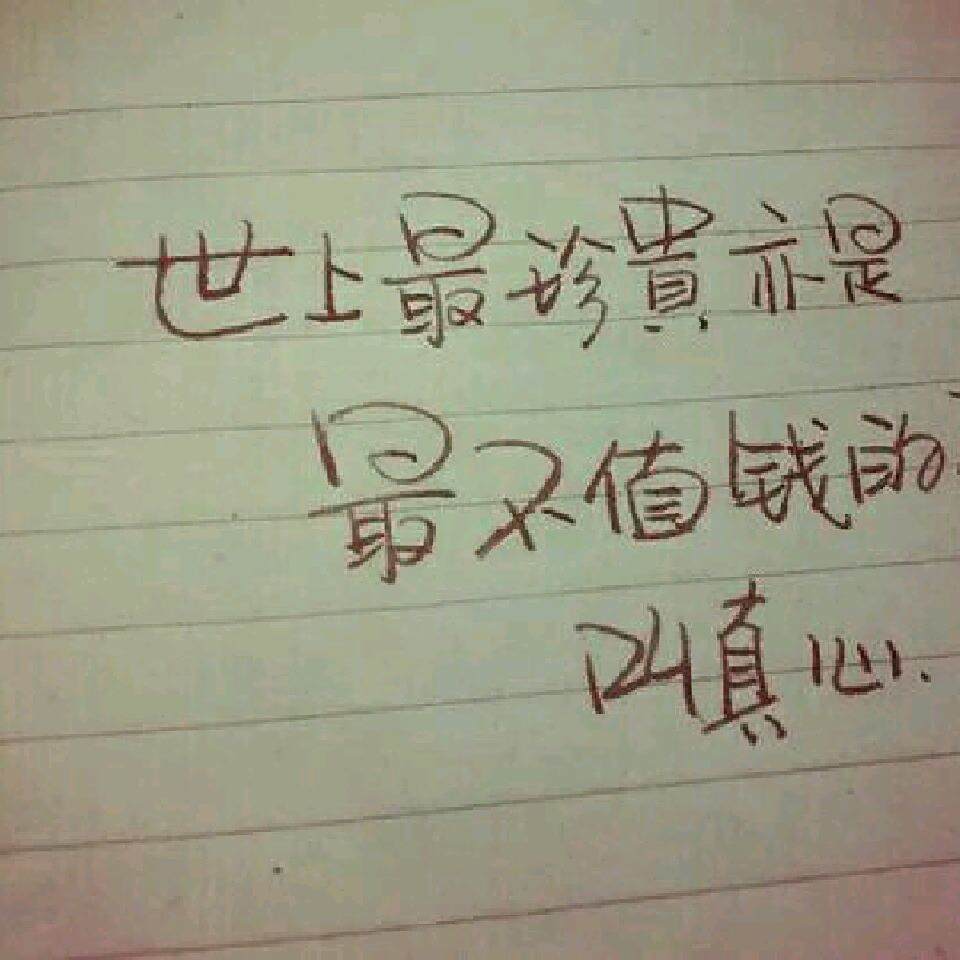 世上最珍貴亦是
最不值钱的
叫真心.